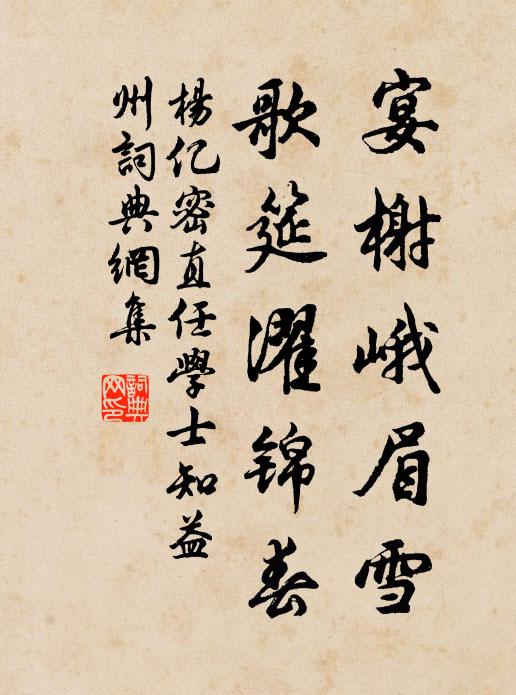 宴榭峨眉雪
歌筵濯錦春
楊億密直任學士知益
州詞典網集
詞典网印